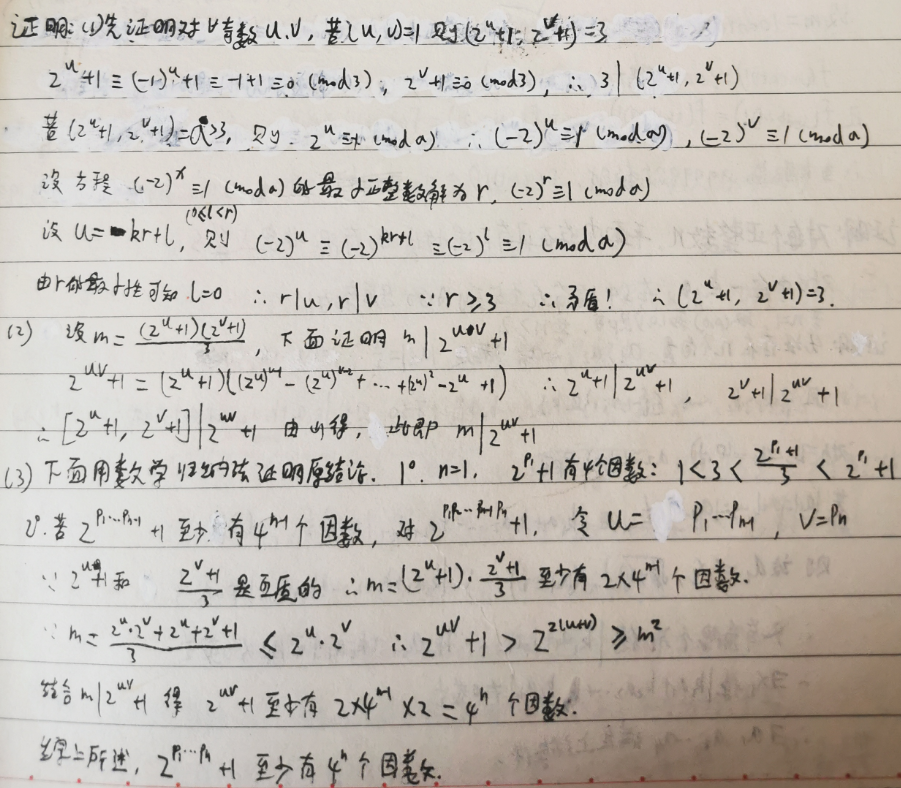 证明: (1)先证明对∀奇数u.v, 若(u,v)=1 则(2^u+1, 2^v+1)=3
2^u+1≡(-1)^u+1≡-1+1≡0 (mod3), 2^v+1≡0 (mod3), ∴3|(2^u+1, 2^v+1)
若(2^u+1, 2^v+1)=a>3, 则 2^u≡-1 (mod a) ∴(-2)^u≡1 (mod a), (-2)^v≡1 (mod a)
设方程(-2)^x≡1 (mod a)的最小正整数解为r, (-2)^r≡1 (mod a)
设u=kr+l, (0≤l<r) 则 (-2)^u≡(-2)^{kr+l}≡(-2)^l≡1 (mod a)
由r的最小性可知l=0 ∴r|u, r|v ∵r≥3 ∴矛盾! ∴(2^u+1, 2^v+1)=3.
(2) 设m=\frac{(2^u+1)(2^v+1)}{3}, 下面证明 m|2^{uv}+1
2^{uv}+1=(2^u+1)((2^u)^{v-1}-(2^u)^{v-2}+…+(2^u)^2-2^u+1) ∴2^u+1|2^{uv}+1, 2^v+1|2^{uv}+1
∴[2^u+1, 2^v+1]|2^{uv}+1 由(1)得, 此即 m|2^{uv}+1
(3)下面用数学归纳法证明原结论. 1° n=1. 2^{p_1}+1有4个因数: 1<3<\frac{2^{p_1}+1}{3}<2^{p_1}+1
2°若2^{p_1…p_{n-1}}+1至少有4^{n-1}个因数, 对2^{p_1p_2…p_{n-1}p_n}+1, 令u=p_1…p_{n-1}, v=p_n
∵2^u+1和\frac{2^v+1}{3}是互质的 ∴m=(2^u+1)·\frac{2^v+1}{3}至少有2×4^{n-1}个因数.
∵m=\frac{2^u·2^v+2^u+2^v+1}{3}≤2^u·2^v ∴2^{uv}+1>2^{2(u+v)}≥m^2
结合m|2^{uv}+1得 2^{uv}+1至少有2×4^{n-1}×2=4^n个因数.
综上所述, 2^{p_1…p_n}+1至少有4^n个因数.